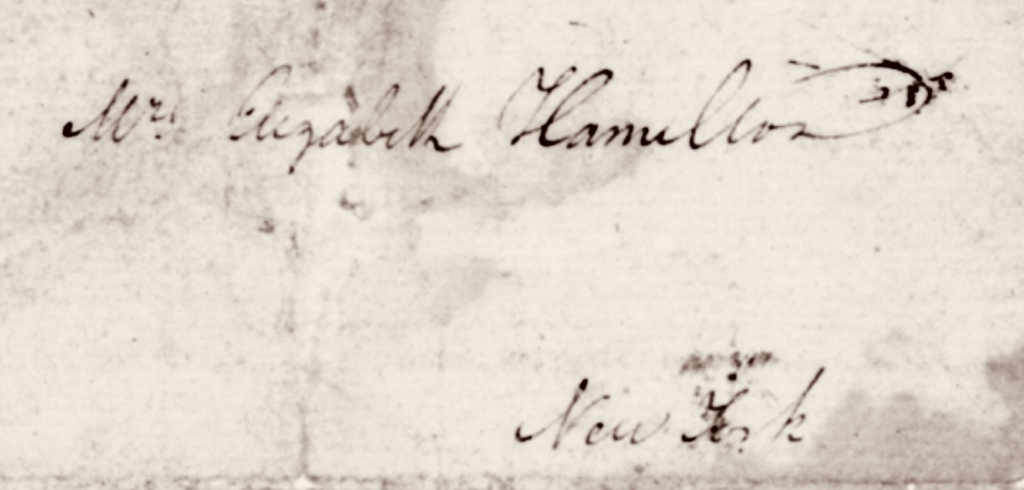 Mrs Elizabeth Hamilton
New York